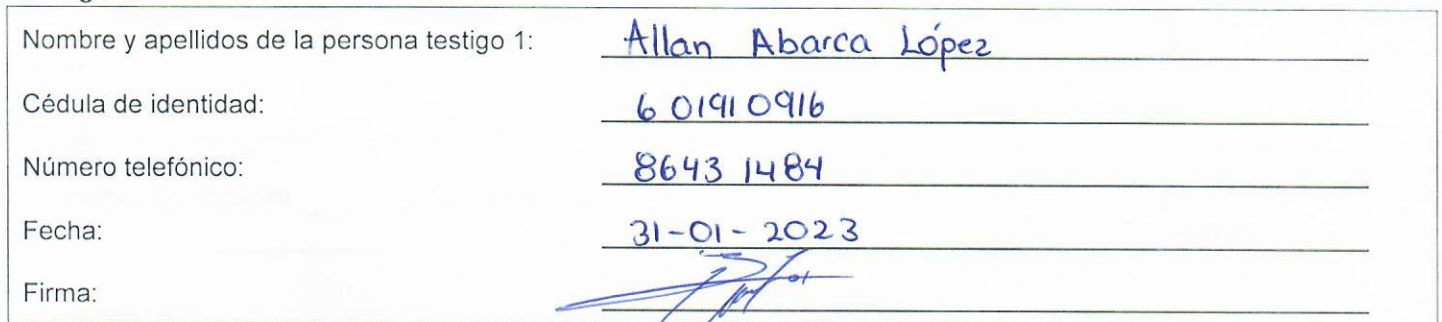 Nombre y apellidos de la persona testigo 1: Allan Abarca López
Cédula de identidad: 6 0191 0916
Número telefónico: 8643 1484
Fecha: 31-01-2023
Firma: